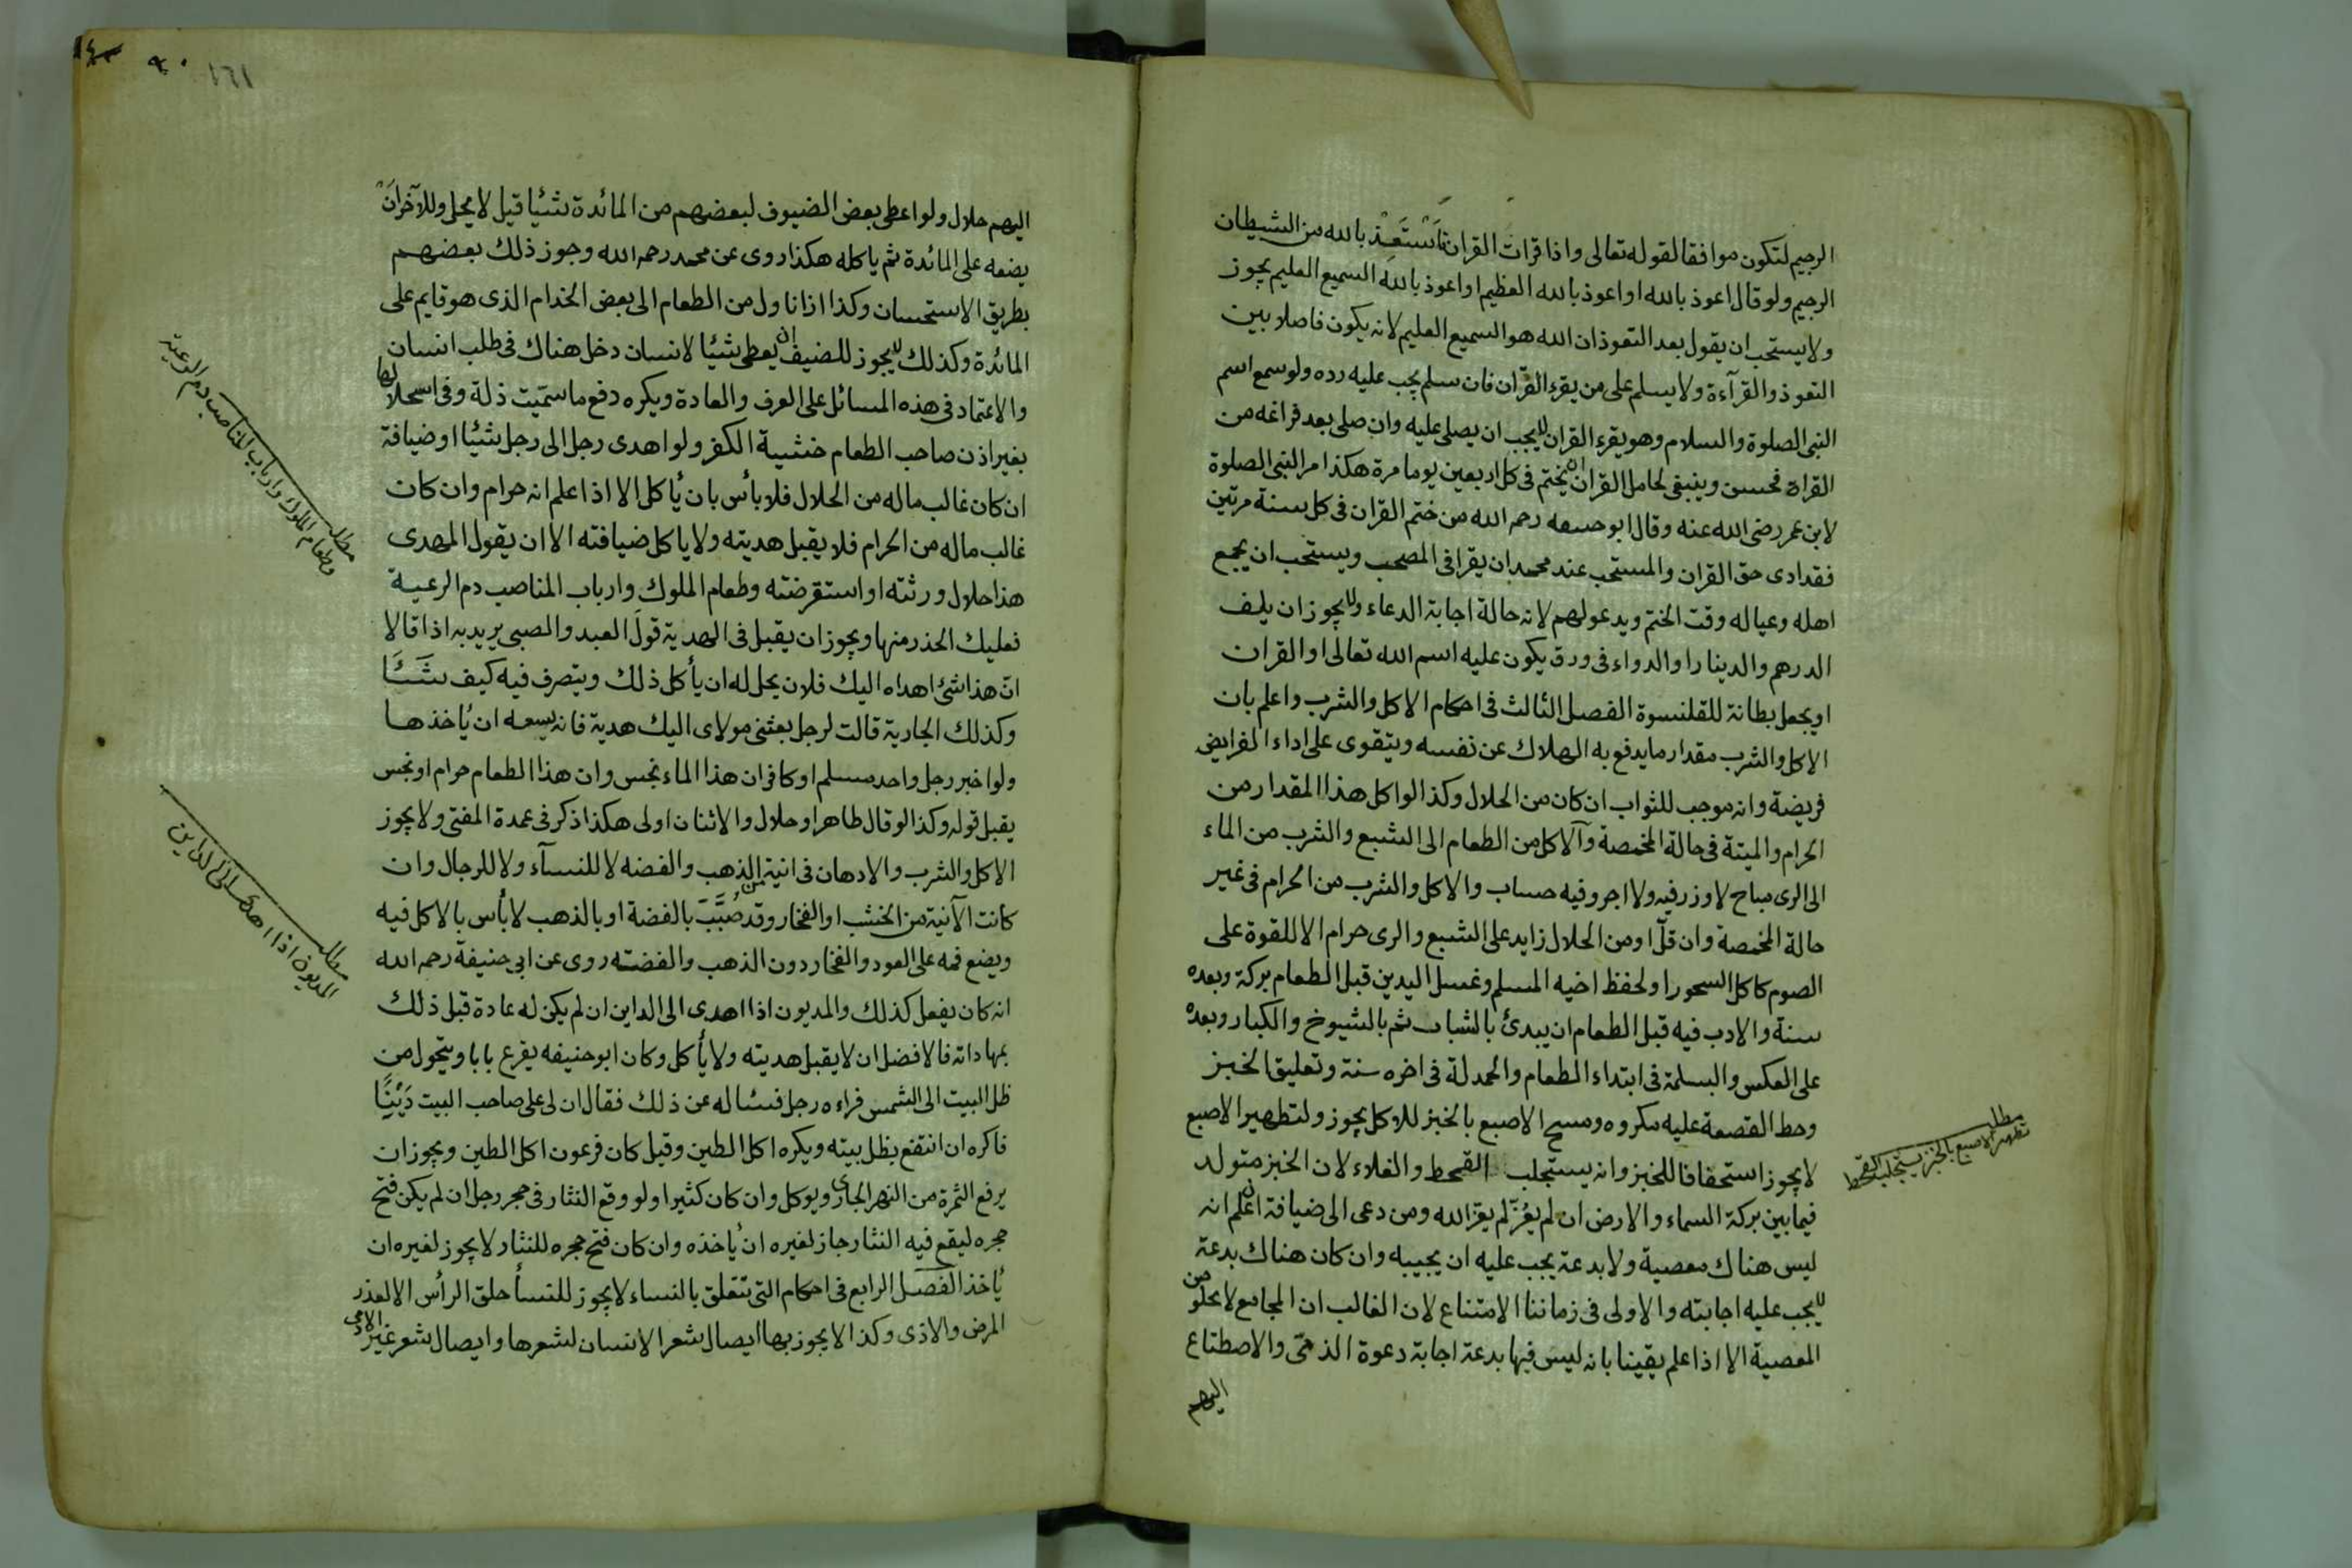 الرجيم لتكون موافقا لقوله تعالى واذا قرات القران فَاسْتَعِذْ بالله من الشيطان
الرجيم ولو قال اعوذ بالله او اعوذ بالله العظيم او اعوذ بالله السميع العليم يجوز
ولا يستحب ان يقول بعد التعوذ ان الله هو السميع العليم لانه يكون فاصلا بين
التعوذ والقرآءة ولا يسلم على من يقرء القرّان فان سلم يجب عليه رده ولو سمع اسم
النبى الصلوة والسلام وهو يقرء القران لا يجب ان يصلى عليه وان صلى بعد فراغه من
القراة فحسن وينبغى لحامل القران ان يختم فى كل اربعين يوما مرة هكذا مر النبى الصلوة
لابن عمر رضى الله عنه وقال ابو حنيفه رحمه الله من ختم القران فى كل سنة مرتين
فقد ادى حق القران والمستحب عند محمد ان يقرا فى المصحف ويستحب ان يجمع
اهله وعياله وقت الختم ويدعو لهم لانه حالة اجابة الدعاء ولا يجوز ان يلف
الدرهم والدينار او الدواء فى ورق يكون عليه اسم الله تعالى او القران
او يجعل بطانة للقلنسوة الفصل الثالث فى احكام الاكل والشرب واعلم بان
الاكل والشرب مقدار ما يدفع به الهلاك عن نفسه ويتقوى على اداء الفرايض
فريضة وانه موجب للثواب ان كان من الحلال وكذا لو اكل هذا المقدار من
الحرام والميتة فى حالة المخمصة وآلاكل من الطعام الى الشبع والشرب من الماء
الى الرى مباح لا وزر فيه ولا اجر وفيه حساب والاكل والشرب من الحرام فى غير
حالة المخمصة وان قلّ او من الحلال زايد على الشبع والرى حرام الا للقوة على
الصوم كاكل السحور او لحفظ اخيه المسلم وغسل اليدين قبل الطعام بركة وبعده
سنة والادب فيه قبل الطعام ان يبدئ بالشباب ثم بالشيوخ والكبار وبعده
على العكس والبسلمة فى ابتداء الطعام والحمدلة فى اخره سنة وتعليق الخبز
وحط القصعة عليه مكروه ومسح الاصبع بالخبز للاكل يجوز ولتطهير الاصبع
لا يجوز استحفافا للخبز وانه يستجلب القحط والغلاء لان الخبز متولد
فيما بين بركة السماء والارض ان لم يعُزّ لم يعزّ الله ومن دعى الى ضيافة ان علم انه
ليس هناك معصية ولا بدعة يجب عليه ان يجيبه وان كان هناك بدعة
لا يجب عليه اجابته والاولى فى زماننا الامتناع لان الغالب ان المجامع لا يخلو من
المعصية الا اذا علم يقينا بانه ليس فيها بدعة اجابة دعوة الذمّى والاصطناع
اليهم
مطلب
تطهير الاصبع بالخبز يستجلب القحط
١٦١
اليهم حلال ولو اعطى بعض الضيوف لبعضهم من المائدة شئيا قيل لا يحل وللآخر انْ
يضعه على المائدة ثم ياكله هكذا روى عن محمد رحمه الله وجوز ذلك بعضهم
بطريق الاستحسان وكذا اذا ناول من الطعام الى بعض الخدام الذى هو قايم على
المائدة وكذلك لا يجوز للضيف ان يعطى شئيا لانسان دخل هناك فى طلب انسان
والاعتماد فى هذه المسائل على العرف والعادة ويكره دفع ما سمّيت ذلة وفى استحلالها
بغير اذن صاحب الطعام خشية الكفر ولو اهدى رجل الى رجل شئيا او ضيافة
ان كان غالب ماله من الحلال فلا بأس بان يأكل الا اذا علم انه حرام وان كان
غالب ماله من الحرام فلا يقبل هديته ولا ياكل ضيافته الا ان يقول المهدى
هذا حلال ورثته او استقرضته وطعام الملوك وارباب المناصب دم الرعية
فعليك الحذر منها ويجوز ان يقبل فى الهدية قولَ العبد والصبى يريد به اذا قالا
انّ هذا شئ اهداه اليك فلان يحل له ان يأكل ذلك ويتصرف فيه كيف شَئَا
وكذلك الجارية قالت لرجل بعثنى مولاى اليك هدية فانه يسعه ان يأخذها
ولو اخبر رجل واحد مسلم او كافر ان هذا الماء نجس وان هذا الطعام حرام او نجس
يقبل قوله وكذا لو قال طاهر او حلال والاثنان اولى هكذا ذكر فى عمدة المفتى ولا يجوز
الاكل والشرب والادهان فى انية من الذهب والفضه لا للنسآء ولا للرجال وان
كانت الآنية من الخشب او الفخار وقد ضُبّبَ بالفضة او بالذهب لا بأس بالاكل فيه
ويضع فمه على العود والفخار دون الذهب والفضته روى عن ابى حنيفة رحمه الله
انه كان يفعل كذلك والمديون اذا اهدى الى الداين ان لم يكن له عادة قبل ذلك
بمهاداته فالافضل ان لا يقبل هديته ولا يأكل وكان ابو حنيفه يقرع بابا ويتحول من
ظل البيت الى الشمس فراءه رجل فسئاله عن ذلك فقال ان لى على صاحب البيت دَيْنًا
فاكره ان انتفع بظل بيته ويكره اكل الطين وقيل كان فرعون اكل الطين ويجوز ان
يرفع الثمرة من النهر الجارى ويوكل وان كان كثيرا ولو وقع النثار فى حجر رجل ان لم يكن فتح
حجره ليقع فيه النثار جاز لغيره ان يأخذه وان كان فتح حجره للنثار لا يجوز لغيره ان
يأخذ الفصل الرابع فى احكام التى تتعلق بالنساء لا يجوز للنسأ حلق الرأس الا لعذر
المرض والاذى وكذا لا يجوز بها ايصال شعر الانسان لشعرها وايصال شعر غير الادمى
مطلب
وطعام الملوك وارباب المناصب دم الرعية
مطلب
المديون اذا اهدى الى الداين